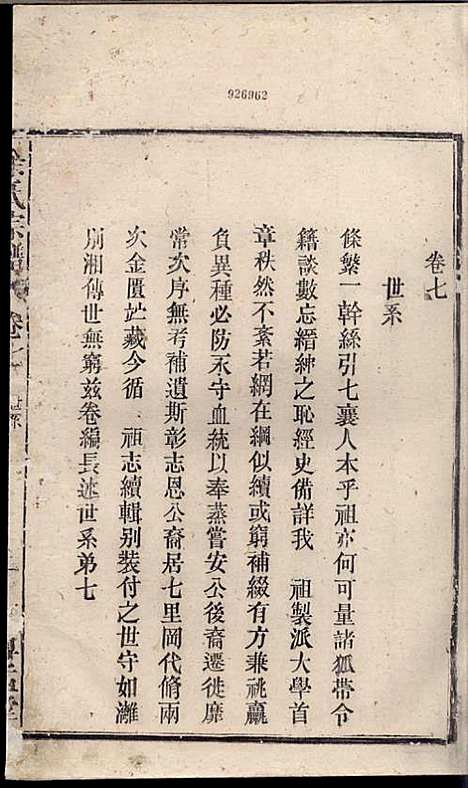 926962
卷七
世系
條繫一幹絲引七襄人本乎祖亦何可量諸狐帶令
籍談數忘縉紳之恥經史備詳我 祖製派大學首
章秩然不紊若網在綱似續或窮補綴有方兼祧贏
負異種必防永守血統以奉蒸嘗安公後裔遷徙靡
常次序無考補遺斯彰志恩公裔居七里岡代脩兩
次金匱並藏今循 祖志續輯別裝付之世守如灕
別湘傳世無窮茲卷編長述世系弟七
氏宗譜
卷七
世系